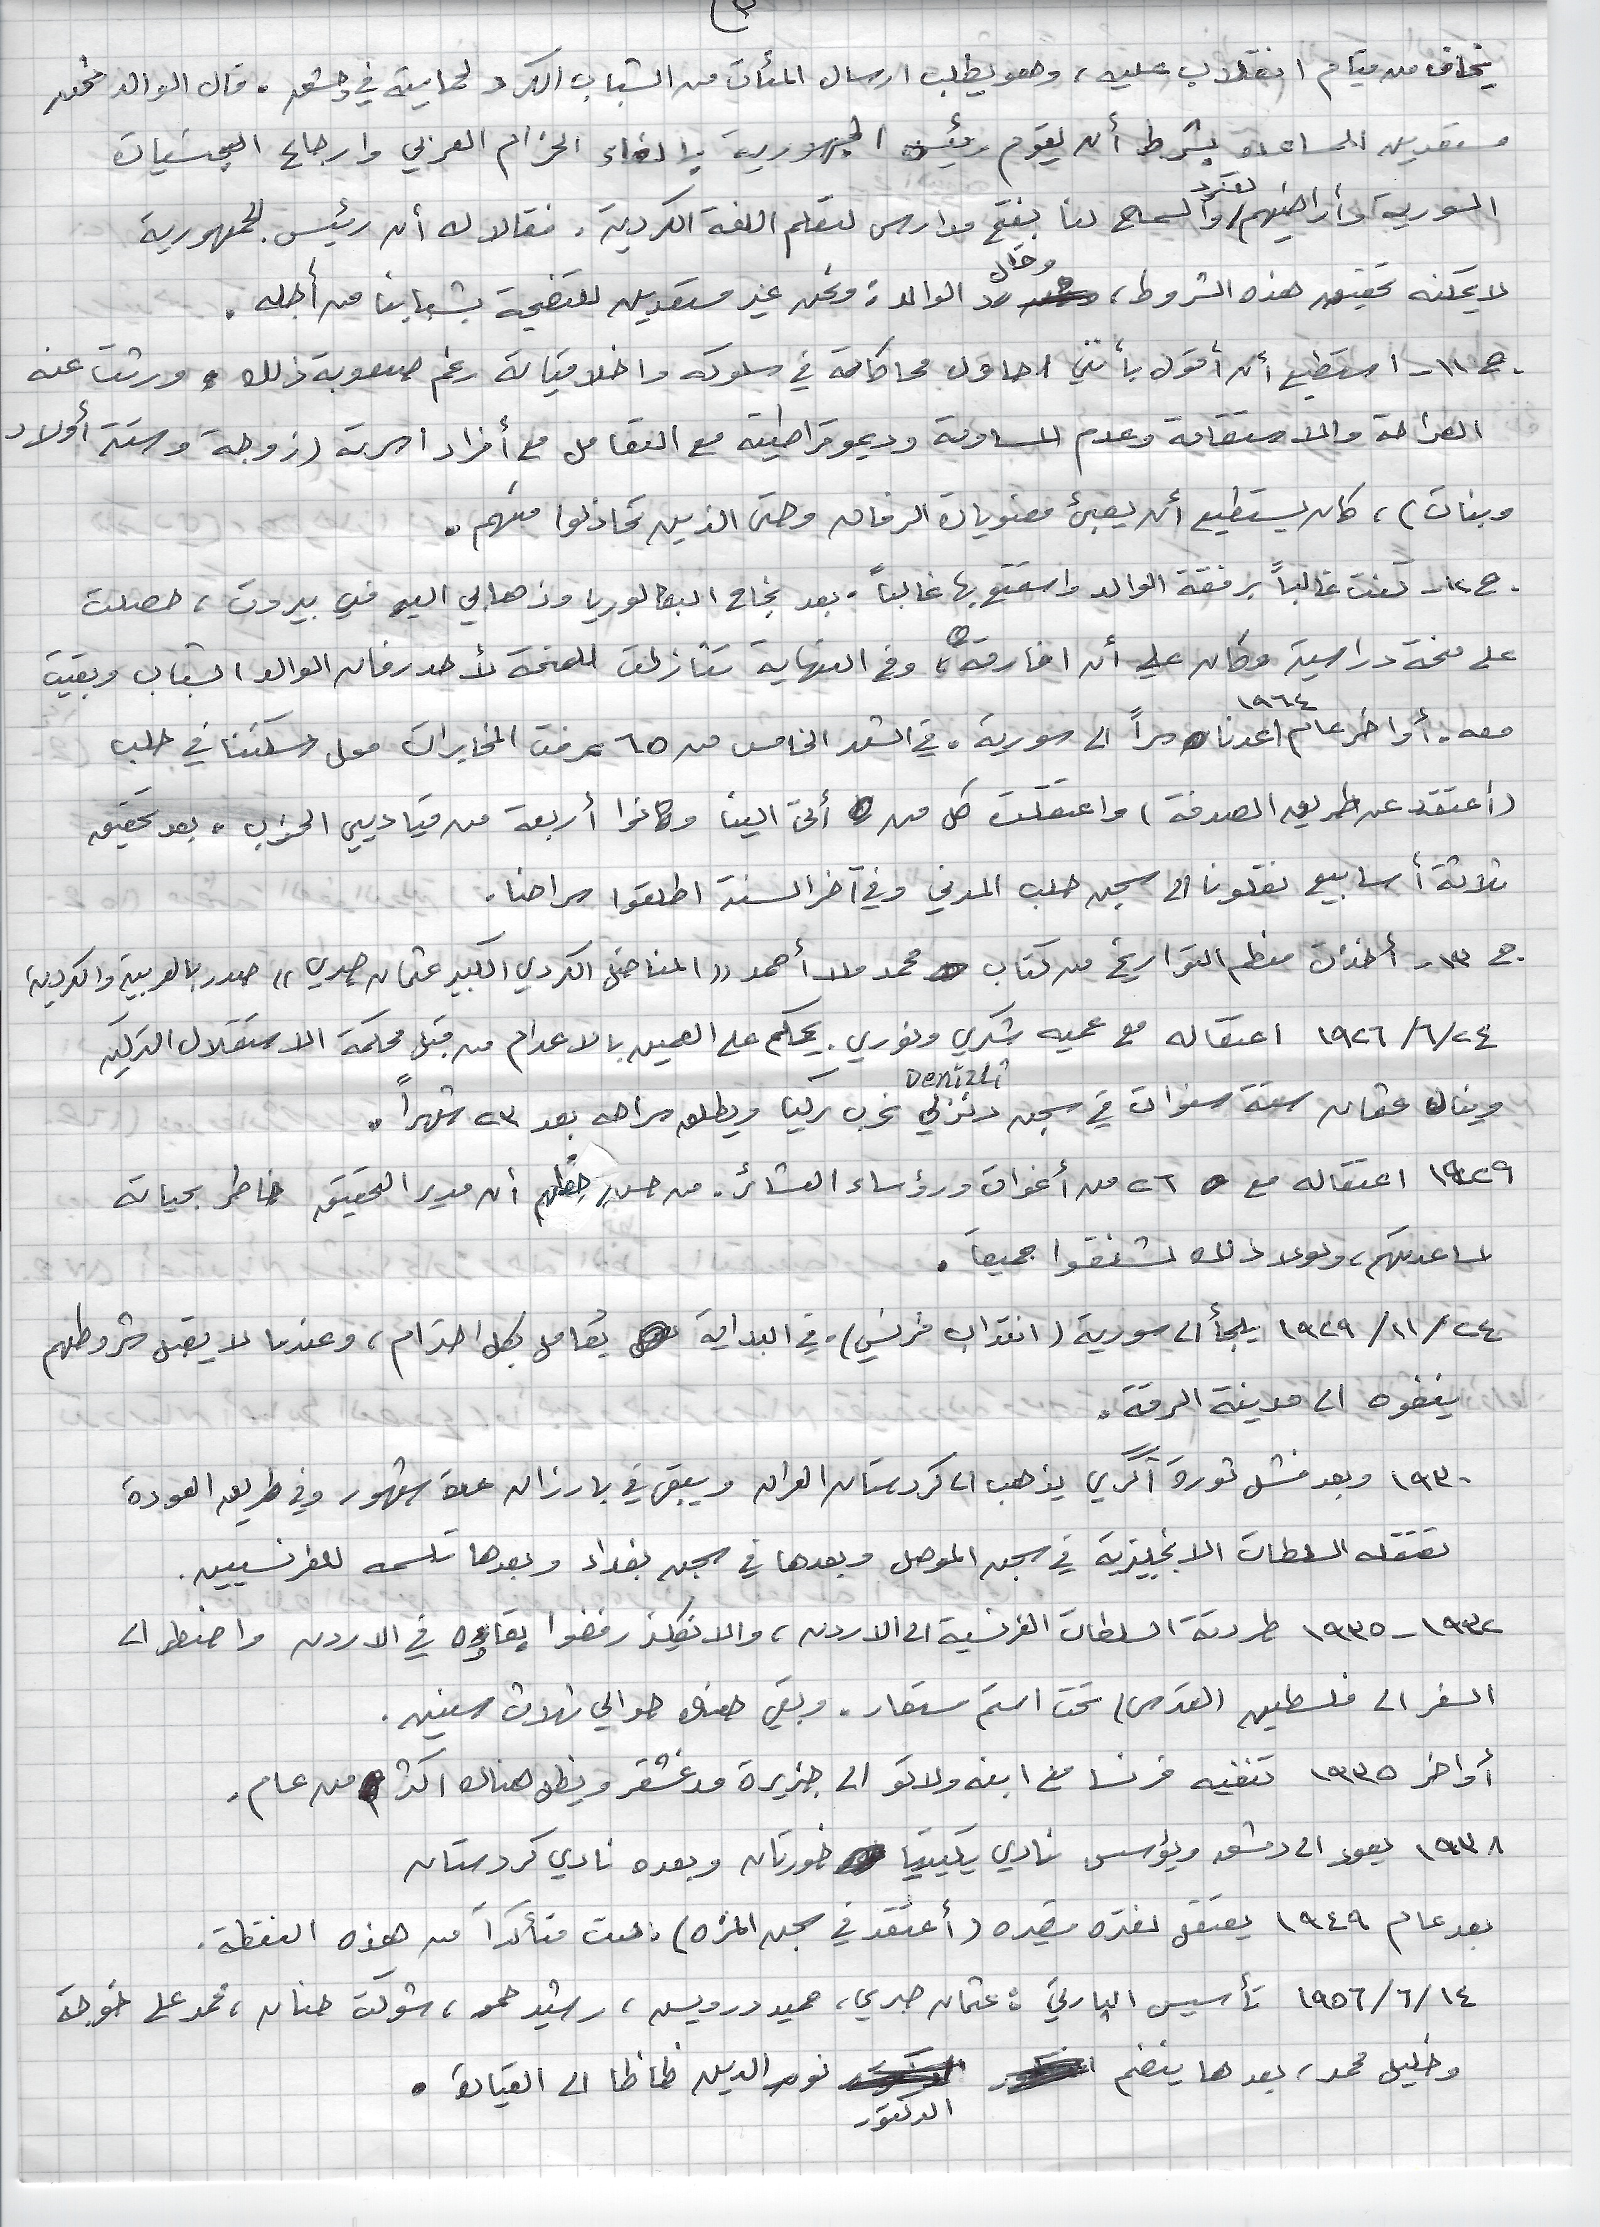 (٣
يخاف من قيام انقلاب عليه، وهو يطلب ارسال المئات من الشباب الكرد لحمايته في دمشق. قال الوالد نحن
مستعدين للمساعدة بشرط أن يقوم رئيس الجمهورية بإلغاء الحزام العربي وارجاع الجنسيات
السورية وأراضيهم والسماح لنا بفتح مدارس لتعلم اللغة الكردية. فقالا له أن رئيس الجمهورية
لا يمكنه تحقيق هذه الشروط، رد الوالد وقال: ونحن غير مستعدين للتضحية بشبابنا من أجله.
ج ١١- استطيع أن أقول بأنني احاول محاكاته في سلوكه واخلاقياته رغم صعوبة ذلك، ورثت عنه
الصراحة والاستقامة وعدم المساومة وديموقراطيته مع التعامل مع أفراد اسرته (زوجة وستة أولاد
وبنات)، كان يستطيع أن يعبئ معنويات الرفاق وحتى الذين تخاذلوا منهم.
ج ١٢- كنت غالباً برفقة الوالد واستمتع بها غالباً. بعد نجاح البكالوريا وذهابي اليه في بيروت، حصلت
على منحة دراسية وكان علي أن افارقه، وفي النهاية تنازلت للمنحة لأحد رفاق الوالد الشباب وبقيت
معه. أواخر عام ١٩٦٤ عدنا سراً الى سورية. في الشهر الخامس من ٦٥ عرفت المخابرات محل سكننا في حلب
(أعتقد عن طريق الصدفة) واعتقلت كل من أتى الينا وكانوا أربعة من قياديي الحزب. بعد تحقيق
ثلاثة أسابيع نقلونا الى سجن حلب المدني وفي آخر السنة اطلقوا سراحنا.
ج ١٣- أخذت معظم التواريخ من كتاب محمد ملا أحمد "المناضل الكردي الكبير عثمان صبري" صدر بالعربية والكردية
١٩٢٦/٦/٢٤ اعتقاله مع عميه شكري ونوري. يحكم على العمين بالاعدام من قبل محكمة الاستقلال التركية
وينال عثمان ستة سنوات في سجن دنزلي Denizli غرب تركيا ويطلق سراحه بعد ٢٣ شهراً.
١٩٢٩ اعتقاله مع ٢٦ من أغوات ورؤساء العشائر. من حسن حظهم أن مدير التحقيق خاطر بحياته
لمساعدتهم، ولولا ذلك لشنقوا جميعاً.
١٩٢٩/١١/٢٤ يلجأ الى سورية (انتداب فرنسي). في البداية يُعامل بكل احترام، وعندما لا يقبل شروطهم
ينفوه الى مدينة الرقة.
١٩٣٠ وبعد فشل ثورة آگري يذهب الى كردستان العراق ويبقى في بارزان عدة شهور وفي طريق العودة
تعتقله السلطات الانجليزية في سجن الموصل وبعدها في سجن بغداد وبعدها تسلمه للفرنسيين.
١٩٣٢-١٩٣٥ طردته السلطات الفرنسية الى الاردن، والانكليز رفضوا بقاءه في الاردن واضطر الى
السفر الى فلسطين (القدس) تحت اسم مستعار. وبقي هناك حوالي ثلاث سنين.
أواخر ١٩٣٥ تنفيه فرنسا مع ابنه ولاتو الى جزيرة مدغشقر ويظل هناك اكثر من عام.
١٩٣٨ يعود الى دمشق ويؤسس نادي يكيتيا خورتان وبعده نادي كردستان
بعد عام ١٩٤٩ يعتقل لفتره قصيره (أعتقد في سجن المزه). لست متأكداً من هذه النقطة.
١٩٥٦/٦/١٤ تأسيس البارتي: عثمان صبري، حميد درويس، رشيد حمو، شوكت حنان، محمد علي خوجة
وخليل محمد، بعدها ينضم الدكتور نور الدين ظاظا الى القيادة.